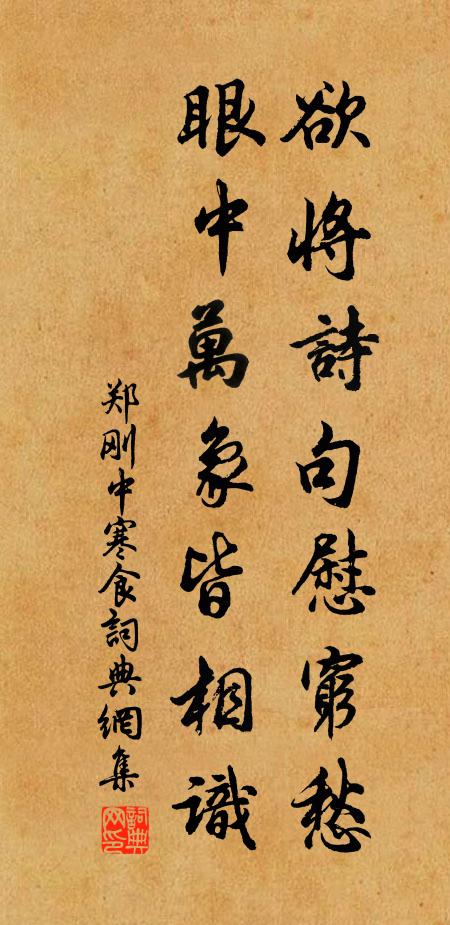 欲将詩句慰窮愁
眼中萬象皆相識
郑刚中寒食詞典網集
詞典网印